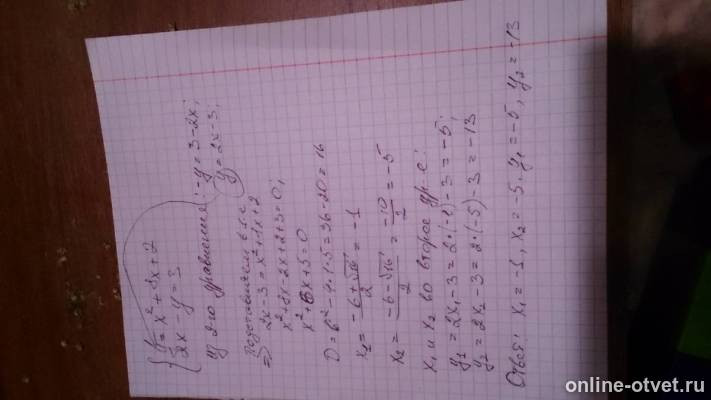 { y = x² + 8x + 2
2x - y = 3
из 2-го уравнения: -y = 3 - 2x;
y = 2x - 3;
подставляем в
=> 2x - 3 = x² + 8x + 2
x² + 8x - 2x + 2 + 3 = 0;
x² + 6x + 5 = 0
D = 6² - 4·1·5 = 36 - 20 = 16
x₁ = (-6 + √16)/2 = -1
x₂ = (-6 - √16)/2 = -10/2 = -5
x₁ и x₂ во второе ур-е:
y₁ = 2x₁ - 3 = 2·(-1) - 3 = -5;
y₂ = 2x₂ - 3 = 2·(-5) - 3 = -13
Ответ: x₁ = -1, x₂ = -5, y₁ = -5, y₂ = -13
online-otvet.ru